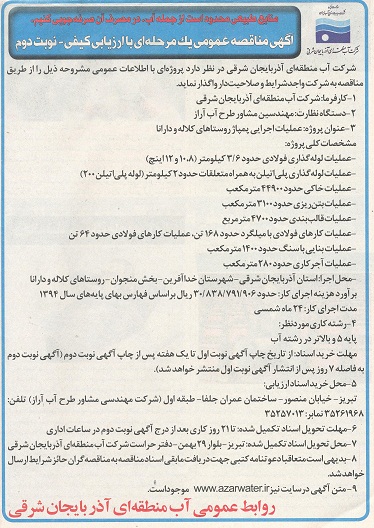 منابع طبیعی محدود است از جمله آب، در مصرف آن صرفه‌جویی کنیم.
آگهی مناقصه عمومی یک مرحله‌ای با ارزیابی کیفی - نوبت دوم
شرکت آب منطقه‌ای آذربایجان شرقی
شرکت آب منطقه‌ای آذربایجان شرقی در نظر دارد پروژه‌ای با اطلاعات عمومی مشروحه ذیل را از طریق
مناقصه به شرکت واجد شرایط و صلاحیت‌دار واگذار نماید.
۱-کارفرما: شرکت آب منطقه‌ای آذربایجان شرقی
۲-دستگاه نظارت: مهندسین مشاور طرح آب آراز
۳-عنوان پروژه: عملیات اجرایی پمپاژ روستاهای کلاله و دارانا
مشخصات کلی پروژه:
-عملیات لوله‌گذاری فولادی حدود ۳/۶ کیلومتر (۱۰،۸ و ۱۲ اینچ)
-عملیات لوله‌گذاری پلی‌اتیلن به همراه متعلقات حدود ۲ کیلومتر (لوله پلی‌اتیلن ۲۰۰)
-عملیات خاکی حدود ۴۴۹۰۰ مترمکعب
-عملیات بتن‌ریزی حدود ۳۱۰۰ مترمکعب
-عملیات قالب‌بندی حدود ۴۷۰۰ مترمربع
-عملیات کارهای فولادی با میلگرد حدود ۱۶۸ تن، عملیات کارهای فولادی حدود ۶۴ تن
-عملیات بنایی با سنگ حدود ۱۴۰۰ مترمکعب
-عملیات آجرکاری حدود ۲۸۰ مترمکعب
-محل اجرا: استان آذربایجان شرقی-شهرستان خداآفرین-بخش منجوان-روستاهای کلاله و دارانا
برآورد هزینه اجرای کار: حدود ۳۰/۸۳۸/۷۹۱/۹۰۶ ریال براساس فهارس بهای پایه‌های سال ۱۳۹۴
مدت اجرای کار: ۲۴ ماه شمسی
۴-رشته کاری مورد نظر:
پایه ۵ و بالاتر در رشته آب
مهلت خرید اسناد: از تاریخ چاپ آگهی نوبت اول تا یک هفته پس از چاپ آگهی نوبت دوم (آگهی نوبت دوم
به فاصله ۷ روز پس از انتشار آگهی نوبت اول منتشر خواهد شد).
۵-محل خرید اسناد ارزیابی:
تبریز- خیابان منصور- ساختمان عمران جلفا- طبقه اول (شرکت مهندسی مشاور طرح آب آراز) تلفن:
۳۵۲۶۱۹۶۸ نمابر: ۳۵۲۵۷۰۱۳
۶-مهلت تحویل اسناد تکمیل شده: تا ۲۱ روز کاری بعد از درج آگهی نوبت دوم در ساعات اداری
۷-محل تحویل اسناد تکمیل شده: تبریز- بلوار ۲۹ بهمن- دفتر حراست شرکت آب منطقه‌ای آذربایجان شرقی
۸-بدیهی است متعاقبا دعوتنامه کتبی جهت دریافت مابقی اسناد مناقصه به مناقصه گران حائز شرایط ارسال
خواهد شد.
۹-متن آگهی در سایت نیز www.azarwater.ir موجود است.
روابط عمومی آب منطقه‌ای آذربایجان شرقی